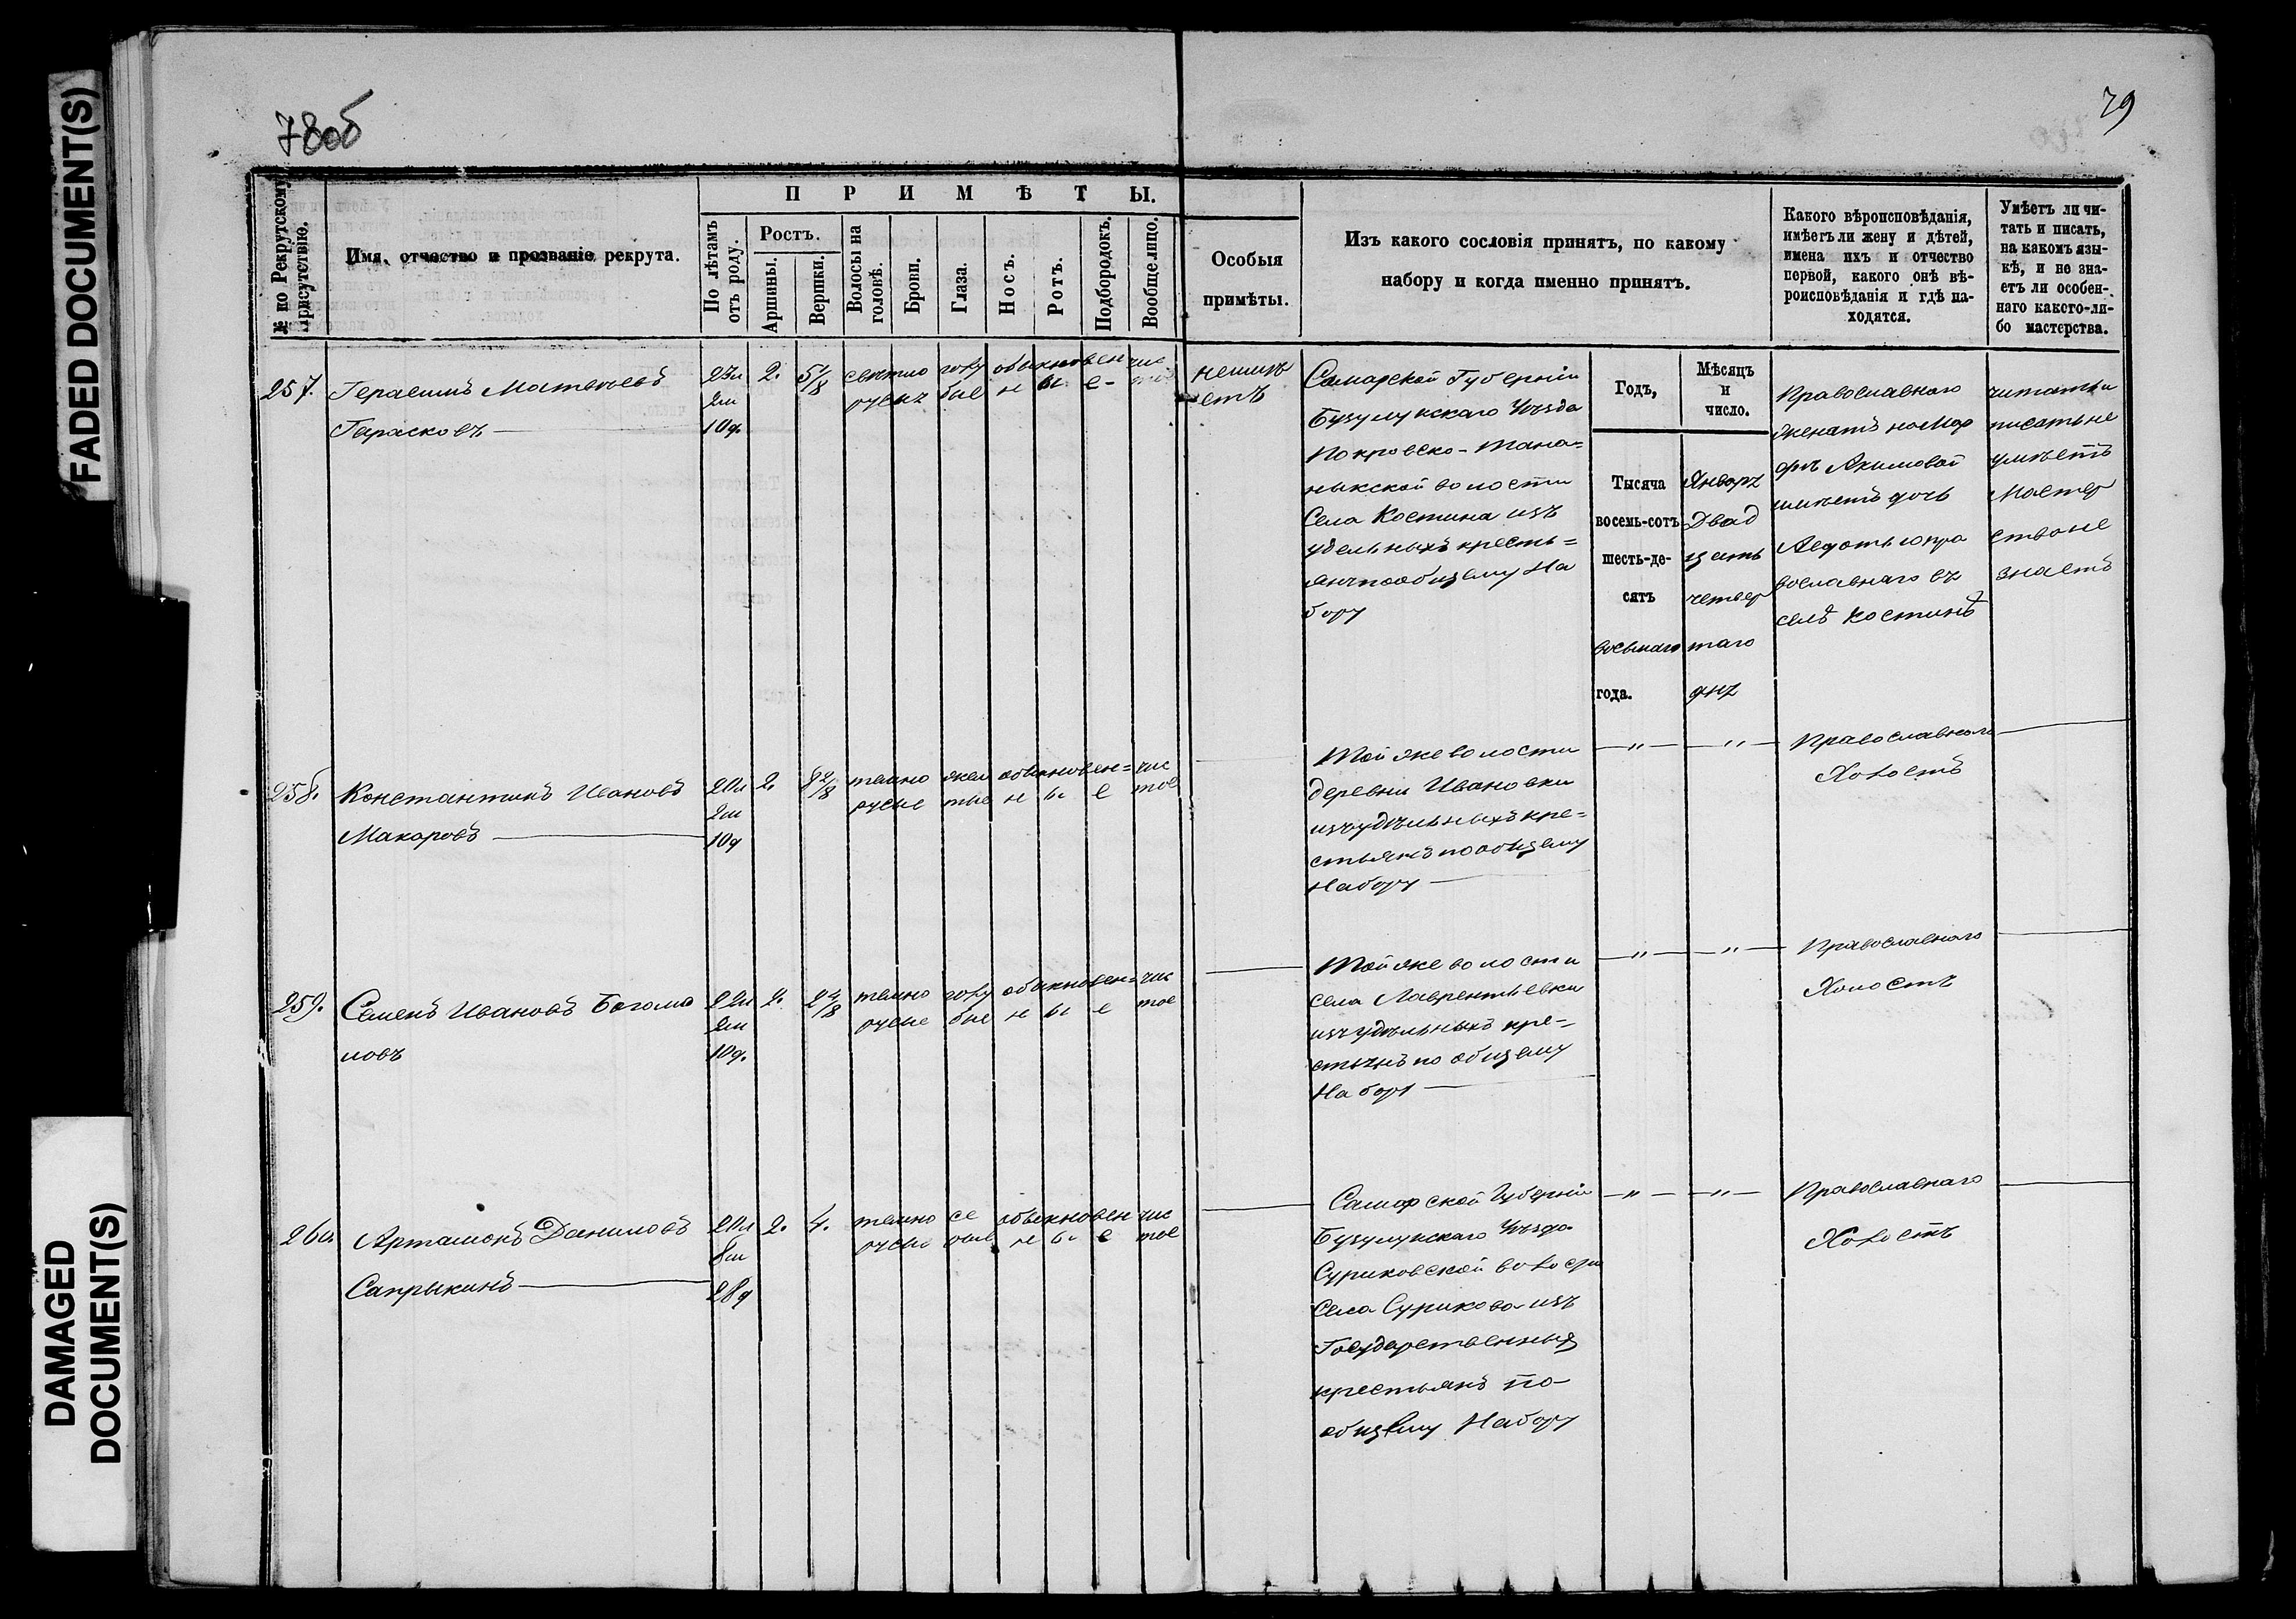 FADED DOCUMENT(S)
DAMAGED
DOCUMENT(S)
78об
79
№ по Рекрутскому
Присутствію.
Имя, отчество и прозваніе рекрута.
ПРИМѢТЫ.
По лѣтамъ
отъ роду.
Ростъ.
Аршины.
Вершки.
Волосы на
головѣ.
Брови.
Глаза.
Носъ.
Ротъ.
Подбородокъ.
Вообще лицо.
Особыя
примѣты.
Изъ какого сословія принятъ, по какому
набору и когда именно принятъ.
Какого вѣроисповѣданія,
имѣетъ ли жену и дѣтей,
имена ихъ и отчество
первой, какого онѣ вѣ-
роисповѣданія и гдѣ на-
ходятся.
Умѣетъ ли чи-
тать и писать,
на какомъ язы-
кѣ, и не зна-
етъ ли особен-
наго какого-ли-
бо мастерства.
257.
Герасимъ Матвѣевъ
Гарасковъ
23л
2м
10д.
2.
5 1/8
свѣтло
русыя
голу
бые
обыкновен
н ы е
чис
тое
не имѣ
етъ
Самарской Губерніи
Бузулукскаго Уѣзда
Покровско-Тана=
ныкской волости
Села Костина изъ
удельныхъ кресть=
янъ по общему На
бору
Годъ,
Мѣсяцъ
и
число.
Тысяча
восемь-сотъ
шесть-де-
сятъ
восьмаго
года.
Января
Двад
цать
четвер
таго
дня
Православнаго
женатъ на Мар
фѣ Акимовой
имѣетъ дочь
Авдотью пра
вославнаго въ
селѣ Костинѣ
читать и
писать не
умѣетъ
Мастер
ства не
знаетъ
258.
Константинъ Ивановъ
Макаровъ
20л
2м
10д
2.
темно
русые
жел
тые
обыкновен=
н ы е
чис
тое
Той же волости
деревни Ивановки
изъ удѣльныхъ кре=
стьянъ по общему
Набору
—"— —"—
Православнаго
Холостъ
259.
Семенъ Ивановъ Богомо
ловъ
22л
2м
10д.
2.
2 4/8
темно
русые
голу
бые
обыкновен=
н ы е
чис
тое
Той же волости
села Лаврентьевки
изъ удѣльныхъ кре-
стьянъ по общему
Набору
—"— —"—
Православнаго
Холостъ
260.
Артамонъ Даниловъ
Сапрыкинъ
20л
8м
28д
2.
4.
темно
русые
се
рые
обыкновен
н ы е
чис
тое
Самарской Губерніи
Бузулукскаго Уѣзда
Суриковской волости
Села Сурикова изъ
Государственныхъ
крестьянъ по-
общему Набору
—"— —"—
Православнаго
Холостъ